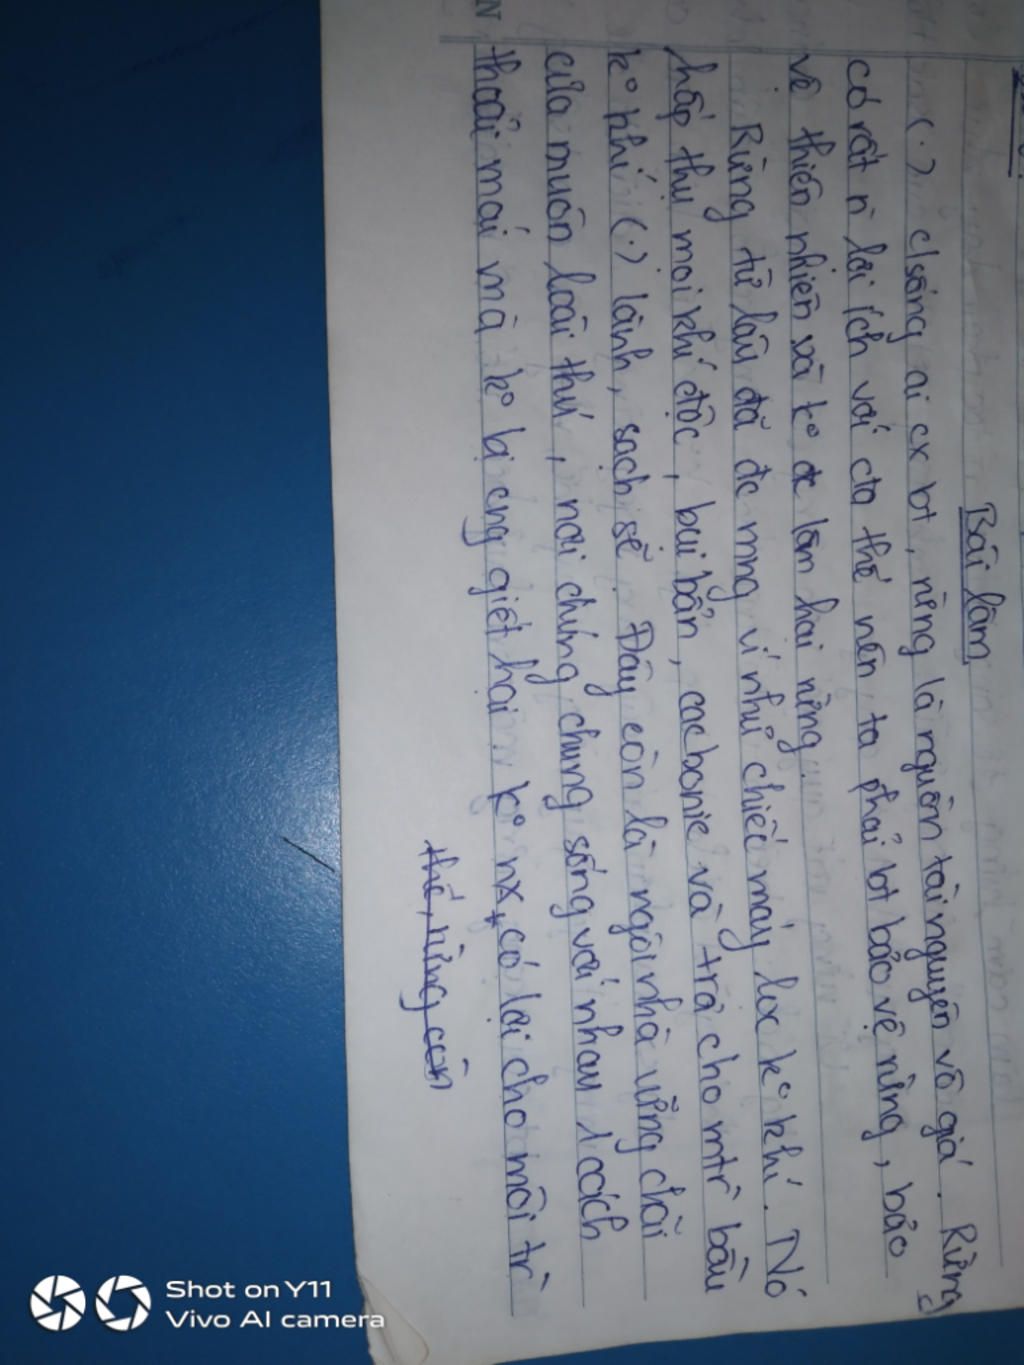 N
Bài làm
(.) c/sống ai cx bt, rừng là nguồn tài nguyên vô giá. Rừng
có rất n̄ lợi ích với cta thế nên ta phải bt bảo vệ rừng, bảo
vệ thiên nhiên và ko đc làm hại rừng.
Rừng từ lâu đã đc mng ví như chiếc máy lọc ko khí. Nó
hấp thụ mọi khí độc, bụi bẩn, cacbonic và trả cho mtr̀ bầu
ko khí (.) lành, sạch sẽ. Đây còn là ngôi nhà vững chãi
của muôn loài thú, nơi chúng chung sống với nhau 1 cách
thoải mái mà ko bị cng giết hại. Ko nx, có lợi cho môi tr̀
thế, rừng còn
Shot on Y11
Vivo AI camera